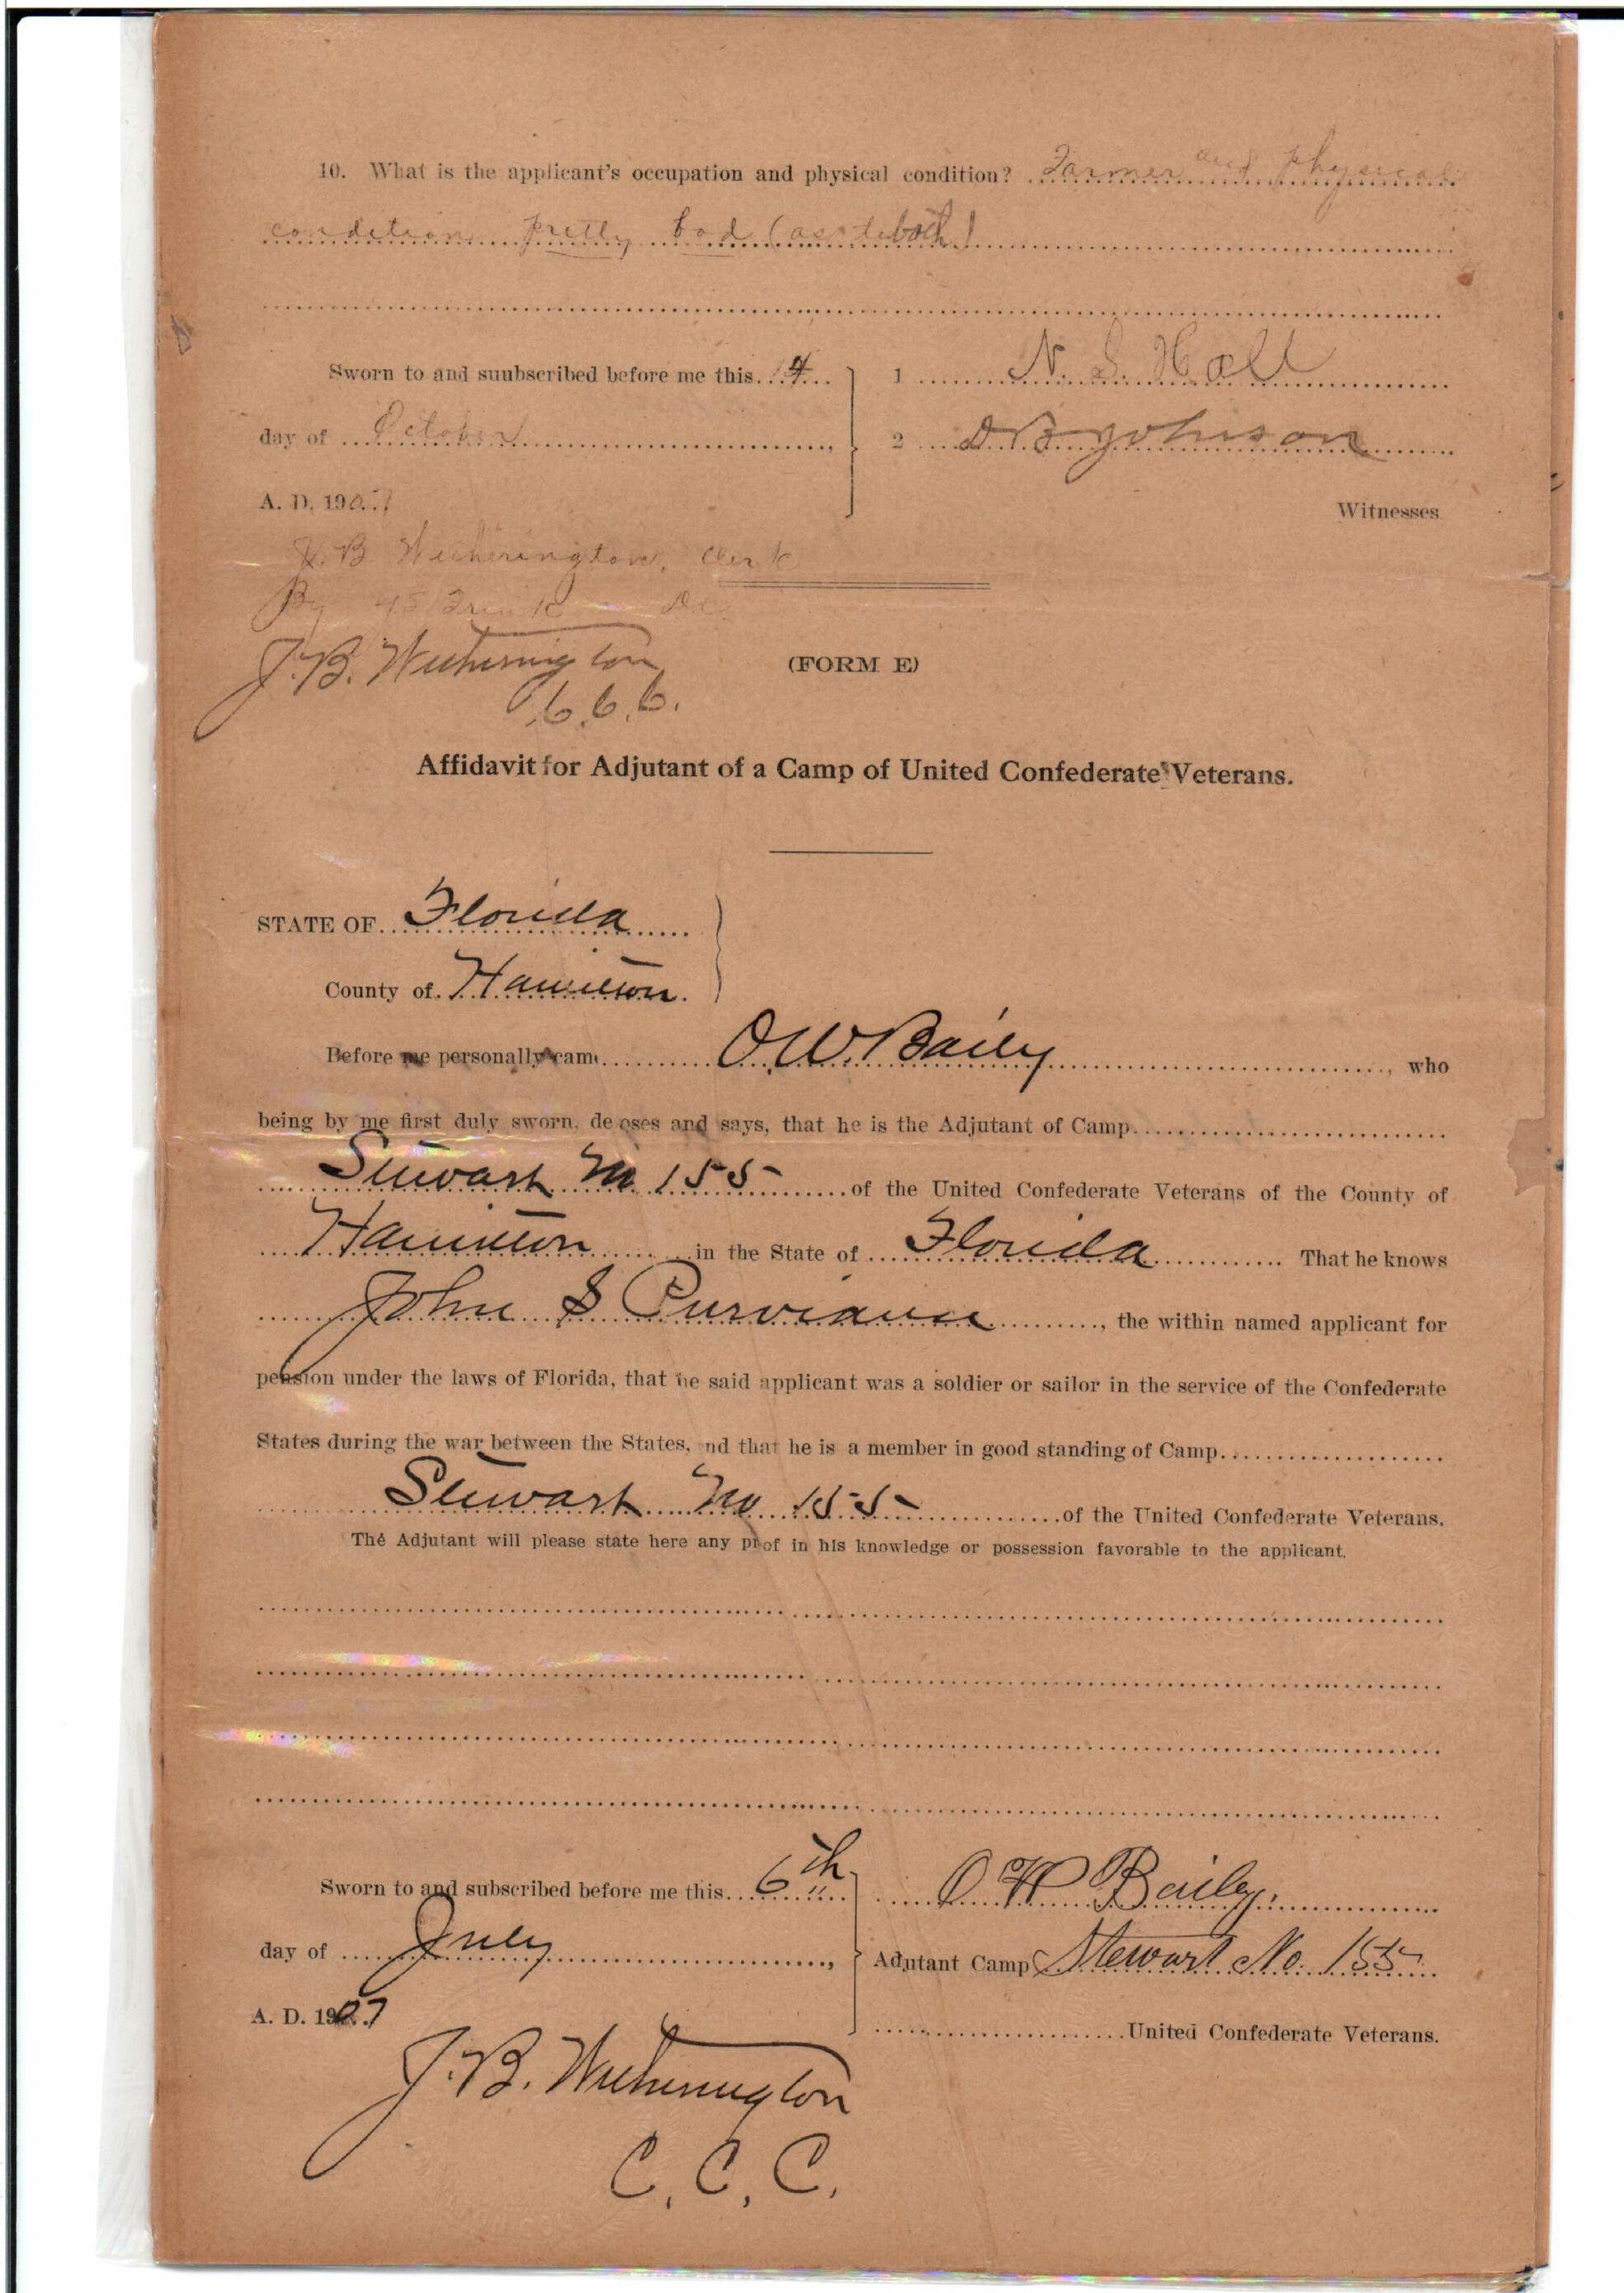 10. What is the applicant's occupation and physical condition? Farmer and physical
condition pretty bad
Sworn to and suubscribed before me this 14 1 N. S. Hall
day of October, 2 D B Johnson
A. D. 1907 Witnesses
J. B Witherington, Clerk
By DC
J. B. Witherington
(FORM E)
Affidavit for Adjutant of a Camp of United Confederate Veterans.
STATE OF Florida
County of Hamilton
Before me personally came O. W. Baily, who
being by me first duly sworn, deposes and says, that he is the Adjutant of Camp
Stewart No 155 of the United Confederate Veterans of the County of
Hamilton in the State of Florida That he knows
John S Purviance, the within named applicant for
pension under the laws of Florida, that he said applicant was a soldier or sailor in the service of the Confederate
States during the war between the States, and that he is a member in good standing of Camp
Stewart No 155 of the United Confederate Veterans.
The Adjutant will please state here any proof in his knowledge or possession favorable to the applicant.
Sworn to and subscribed before me this 6th O W Baily.
day of July, Adjutant Camp Stewart No. 155
A. D. 1907 United Confederate Veterans.
J. B. Witherington
C. C. C.